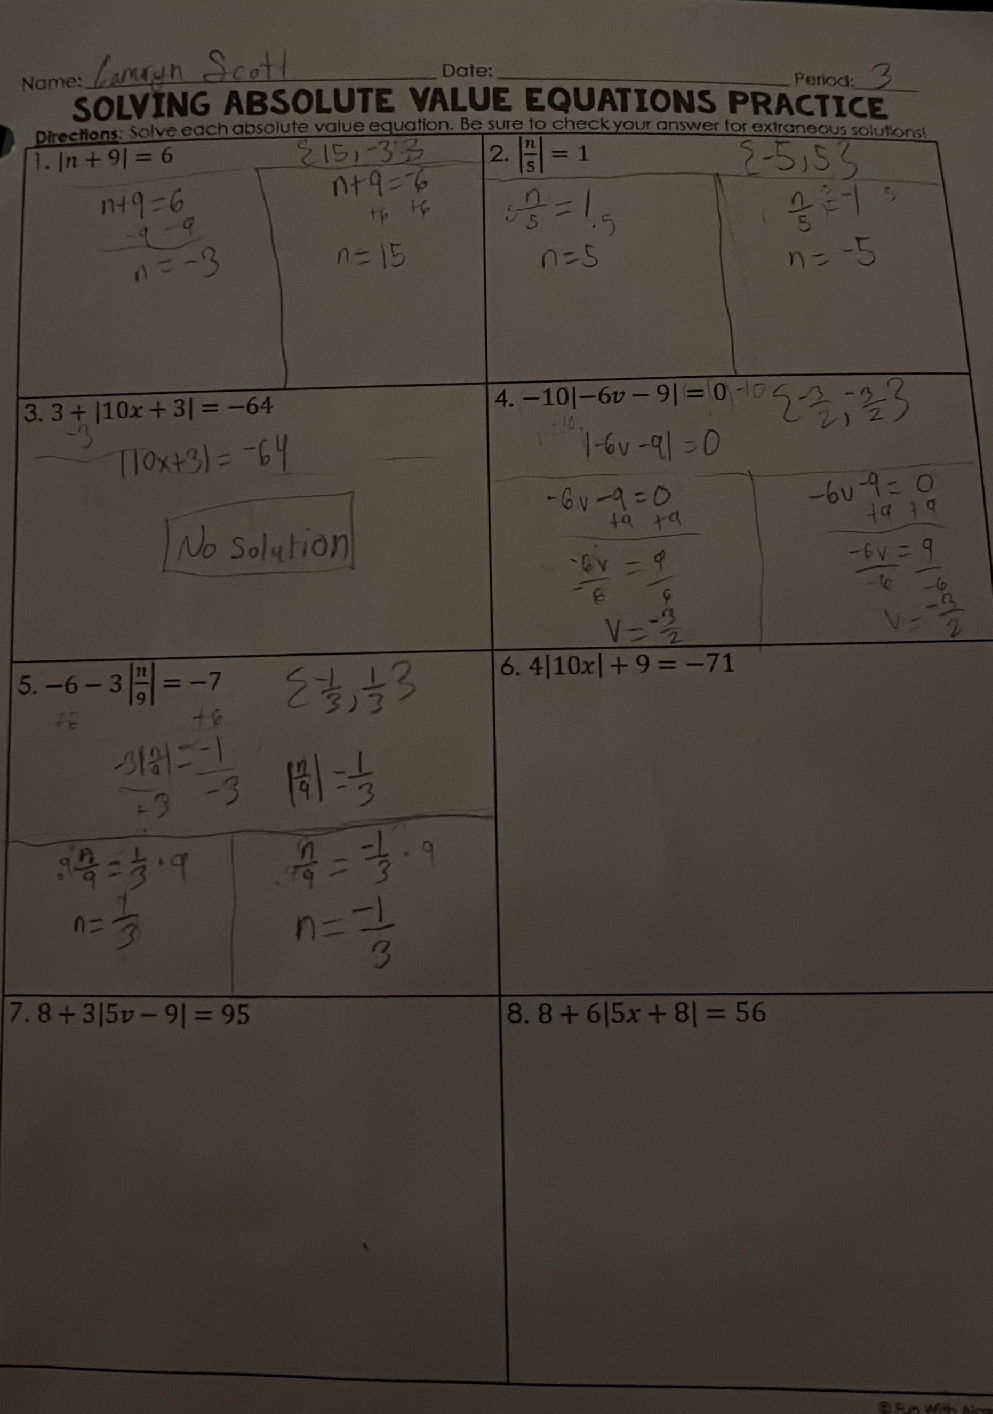 Name: Camryn Scott Date: Period: 3
SOLVING ABSOLUTE VALUE EQUATIONS PRACTICE
Directions: Solve each absolute value equation. Be sure to check your answer for extraneous solutions!
1. |n + 9| = 6 {15, -3}
n+9=6
-9 -9
n = -3
n+9=-6
+6 +6
n=15
2. |n/5| = 1 {-5,5}
5 n/5 = 1 .5
n=5
n/5 = -1 5
n= -5
3. 3 + |10x + 3| = −64
-3
|10x+3| = -64
No Solution
4. −10|−6v − 9| = 0 -10 {-3/2, -3/2}
+10
|-6v -9| =0
-6v-9=0
+9 +9
-6v/-6 = 9/6
v= -3/2
-6v-9= 0
+9 +9
-6v/-6 = 9/-6
v= -3/2
5. −6 − 3|n/9| = −7 {-1/3, 1/3}
+6 +6
-3|n/9|/-3 = -1/-3 |n/9| = 1/3
.9 n/9 = 1/3 · 9
n= 1/3
.9 n/9 = -1/3 · 9
n= -1/3
6. 4|10x| + 9 = −71
7. 8 + 3|5v − 9| = 95
8. 8 + 6|5x + 8| = 56